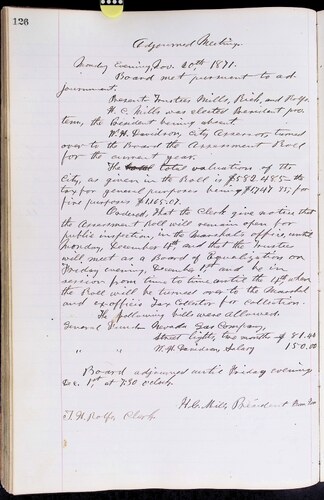 126
Adjourned Meeting.
Monday evening, Nov. 20th 1871.
Board met pursuant to ad-
journment.
Present Trustees Mills, Rich, and Rolfe
H. C. Mills was elected President pro
tem, the President being absent.
W. H. Davidson, City Assessor, turned
over to the Board the Assessment Roll
for the current year.
The total valuation of the
City, as given in the Roll is $582.485- the
tax for general purposes being $1747
fire purposes $1,165.07.
Ordered, That the Clerk give notice that
the Assessment Roll will remain open for
public inspection, in the Marshal's office, until
Monday, December 4th and that the Trustees
will meet as a Board of Equalization on
Friday evening, December 1st and be in
session from time to time until the 4th when
the Roll will be turned over to the Marshal
and ex-officio Tax Collector for collection.
The following bills were allowed.
General Fund Nevada Gas Company,
Street lights, two months $ 81.44
" " W. H. Davidson Salary 150.00
Board adjourned until Friday evening
Dec. 1st at 7:30 o'clock.
H. C. Mills President Pro Tem
T. H. Rolfe Clerk